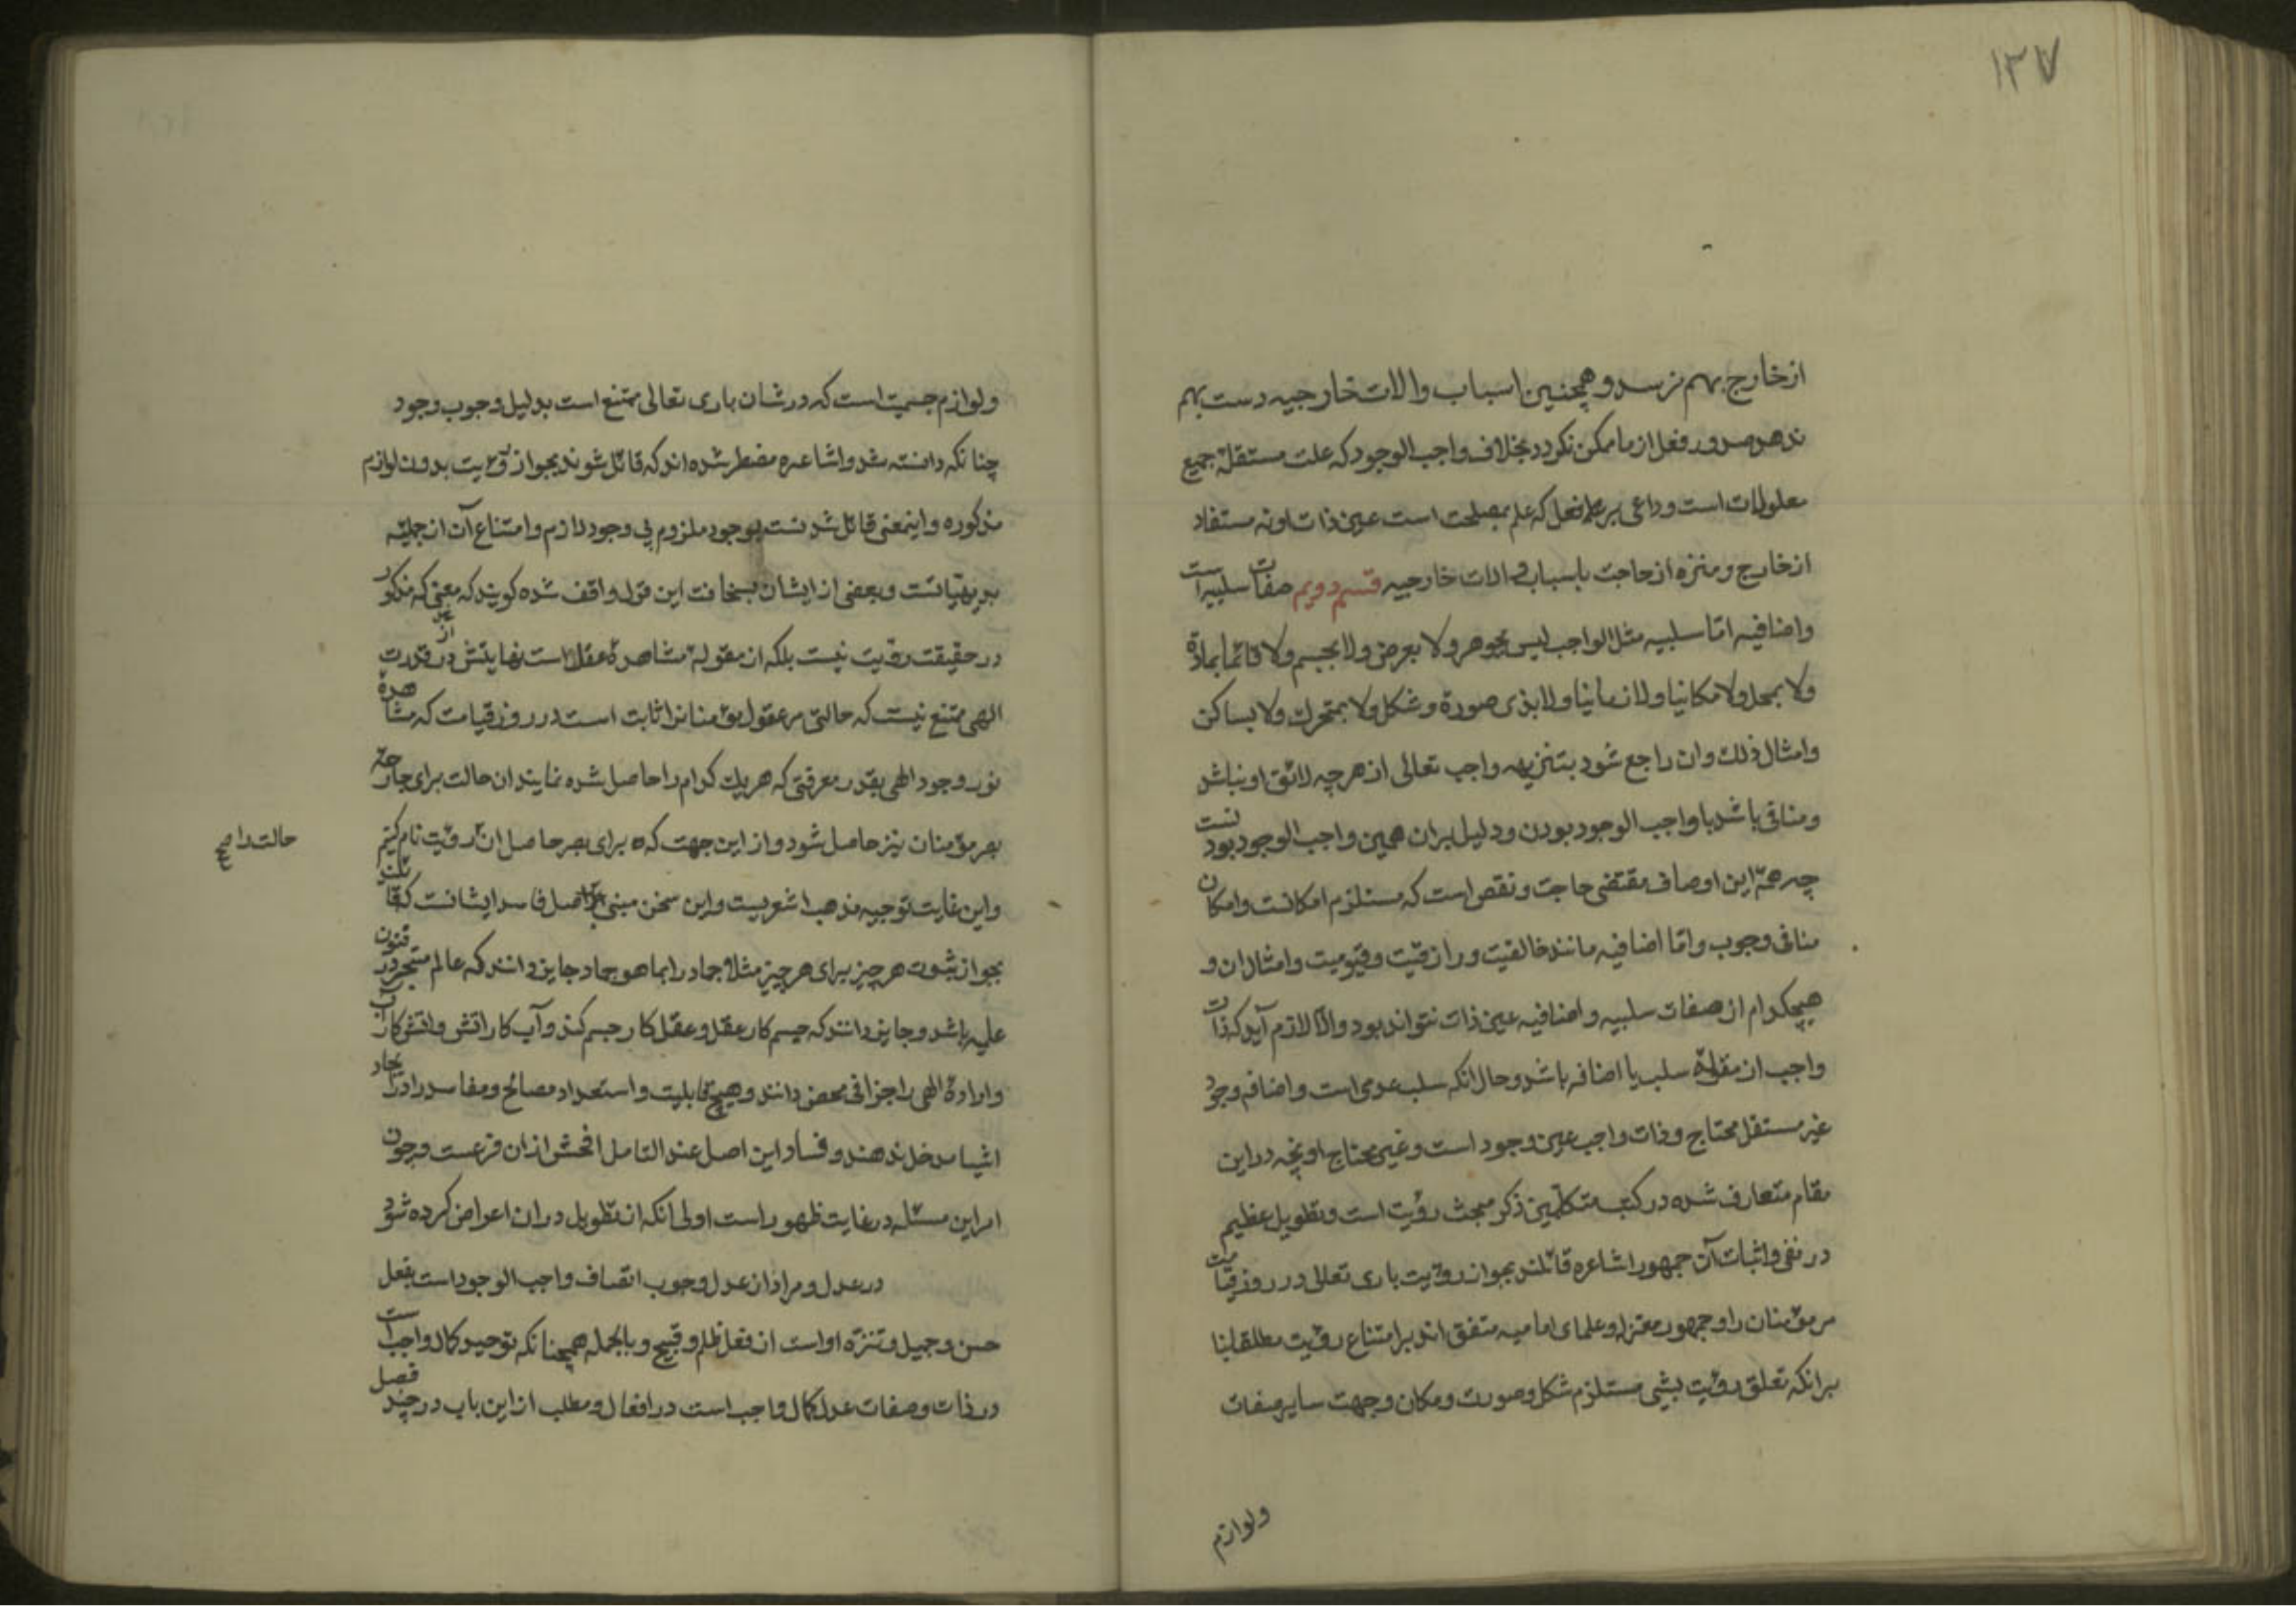 ۱۳۷
از خارج بهم نرسد و همچنین اسباب و الات خارجیه دست بهم
ندهد صدور فعل از ما ممکن نکردد بخلاف واجب الوجود که علت مستقلهٔ جمیع
معلولات است و داعی بر فعل که علم بمصلحت است عین ذات اونه مستفاد
از خارج و منزه از حاجت باسباب و الات خارجیه قسم دویم صفات سلبیه است
و اضافیه امّا سلبیه مثل الواجب لیس بجوهر ولا بعرض ولا بجسم ولا قائما بمادّة
ولا بمحل ولا مکانیا ولا زمانیا ولا بذی صورة و شکل ولا بمتحرك ولا بساکن
و امثال ذلك و ان راجع شود بتنزیه واجب تعالی از هرچه لائق او نباشد
و منافی باشد با واجب الوجود بودن و دلیل بران همین واجب الوجود بودنست
چه همهٔ این اوصاف مقتضی حاجت و نقص است که مستلزم امکانست و امکان
منافی وجوب و امّا اضافیه مانند خالقیت و رازقیّت و قیّومیت و امثال ان و
هیچکدام از صفات سلبیه و اضافیه عین ذات نتواند بود و الّا لازم آید که ذات
واجب از مقولهٔ سلب یا اضافه باشد و حال انکه سلب عدمی است و اضافه وجود
غیر مستقل محتاج و ذات واجب عین وجود است و غیر محتاج و انچه در این
مقام متعارف شده در کتب متکلّمین ذکر مبحث رؤیت است و تطویل عظیم
در نفی و اثبات آن جمهور اشاعره قائلند بجواز رؤیت باری تعالی در روز قیامت
مر مؤمنان را و جمهور معتزله و علمای امامیه متفق اند بر امتناع رؤیت مطلقا بنا
برانکه تعلق رؤیت بشی مستلزم شکل و صورت و مکان و جهت سایر صفات
ولوازم
و لوازم جسمیت است که در شان باری تعالی ممتنع است بدلیل وجوب وجود
چنانکه دانسته شد و اشاعره مضطر شده اند که قائل شوند بجواز رؤیت بدون لوازم
مذکوره و اینمعنی قائل شدنست بوجود ملزوم بی وجود لازم و امتناع آن از جملهٔ
بدیهیاتست و بعضی از ایشان بسخافت این قول واقف شده کویند که معنی که مذکور
در حقیقت رؤیت نیست بلکه از مقولهٔ مشاهدهٔ عقل است نهایتش در قدرت
الهی ممتنع نیست که حالتی مر عقول مؤمنانرا ثابت است در روز قیامت که مشاهدهٔ
نور وجود الهی بقدر معرفتی که هر یك کدام را حاصل شده نمایند ان حالت برای جارحهٔ
بصر مؤمنان نیز حاصل شود و از این جهت که برای بصر حاصل ان رؤیت نام کنیم
حالت را صح
و این غایت توجیه مذهب اشعریست و این سخن مبنی بر اصل فاسد ایشانست که قائلند
بجواز ثبوت هر چیز برای هر چیز مثلا جماد را بما هو جماد جایز دانند که عالم متبحر در فنون
علمیه باشد و جایز دانند که جسم کار عقل و عقل کار جسم کند و آب کار اتش و اتش کار آب
و ارادهٔ الهی را جزافی محض دانند و هیچ قابلیت و استعداد مصالح و مفاسد را در ایجاد
اشیا مدخل ندهند و فساد این اصل عند التامل افحش از ان فرعست و چون
امر این مسئله در غایت ظهور است اولی انکه از تطویل در ان اعراض کرده شود
در عدل و مراد از عدل وجوب اتصاف واجب الوجود است بفعل
حسن و جمیل و تنزّه او است از فعل ظلم و قبیح و بالجمله همچنانکه توحید کمال واجب است
در ذات و صفات عدل کمال واجب است در افعال و مطلب از این باب در چند فصل